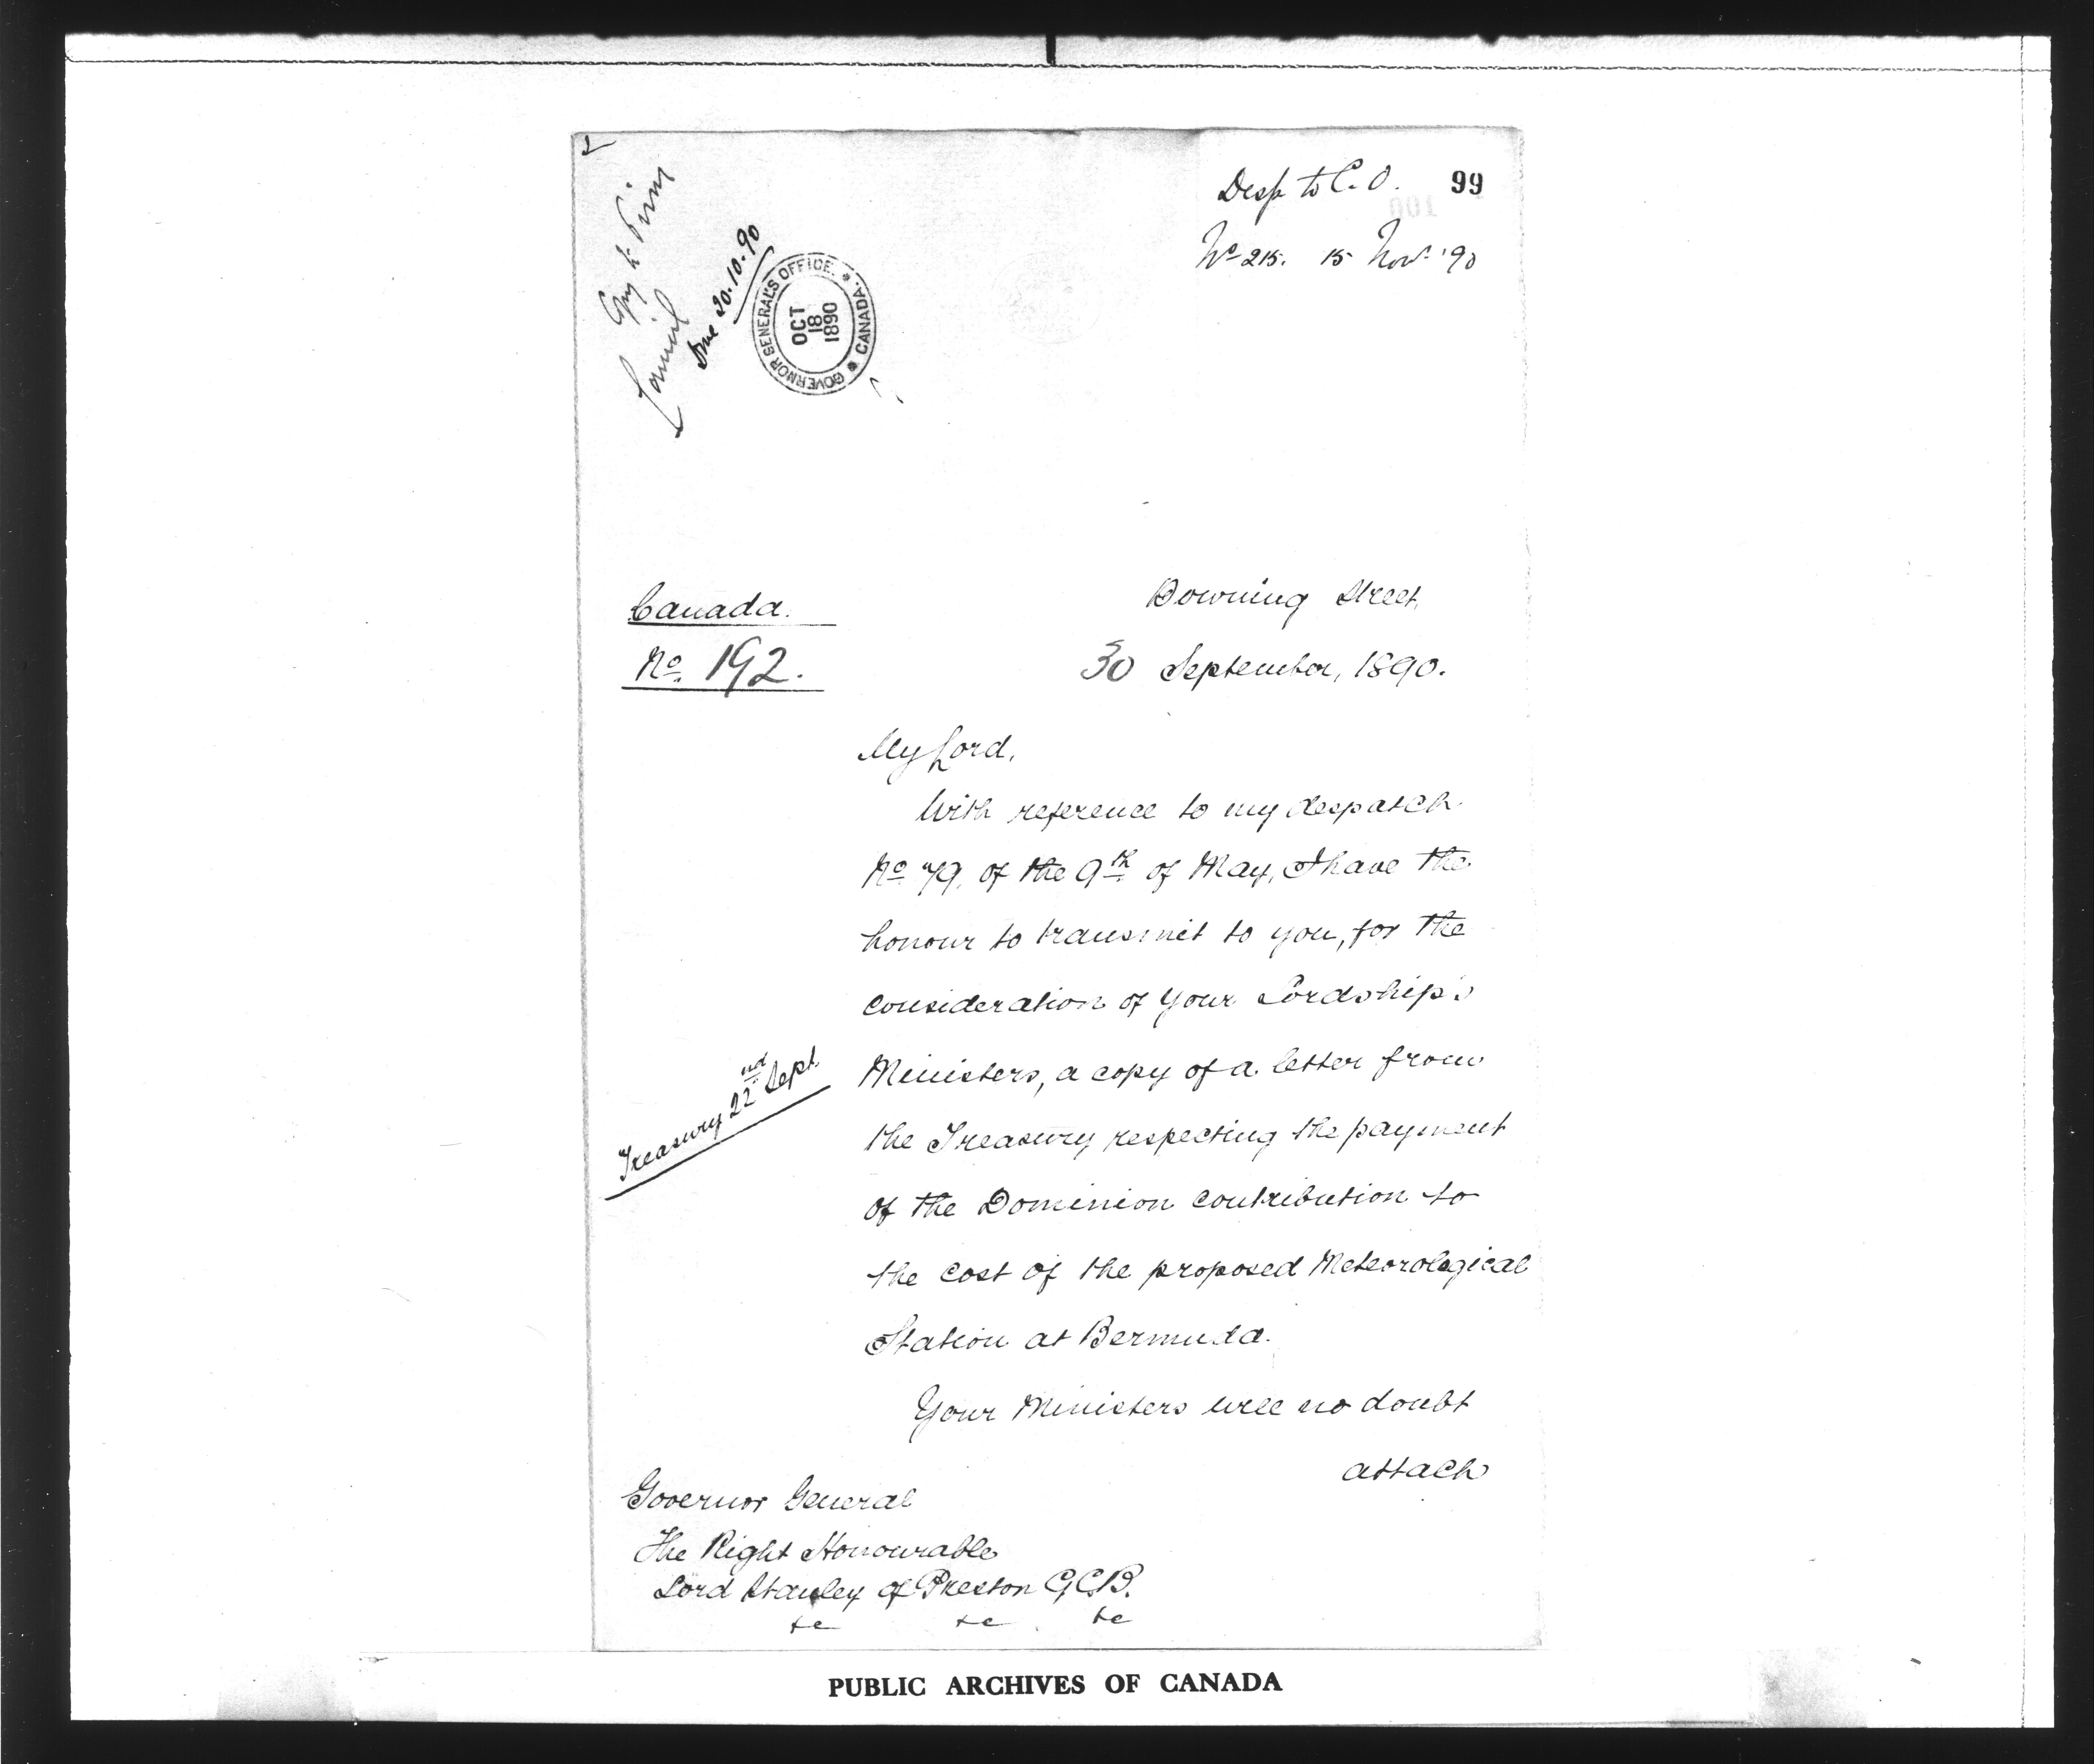 Desp to C.O. 99
No 215. 15 Nov. '90
Copy to Privy
Council
Done 20.10.90
GOVERNOR GENERAL'S OFFICE. * CANADA. *
OCT
18
1890
Canada.
No. 192.
Downing Street,
30 September, 1890.
My Lord,
With reference to my despatch
No 79, of the 9th of May, I have the
honour to transmit to you, for the
consideration of your Lordship's
Ministers, a copy of a letter from
Treasury 22nd Sept.
the Treasury respecting the payment
of the Dominion contribution to
the cost of the proposed Meteorological
Station at Bermuda.
Your Ministers will no doubt
attach
Governor General
The Right Honourable
Lord Stanley of Preston G.C.B.
&c &c &c
PUBLIC ARCHIVES OF CANADA